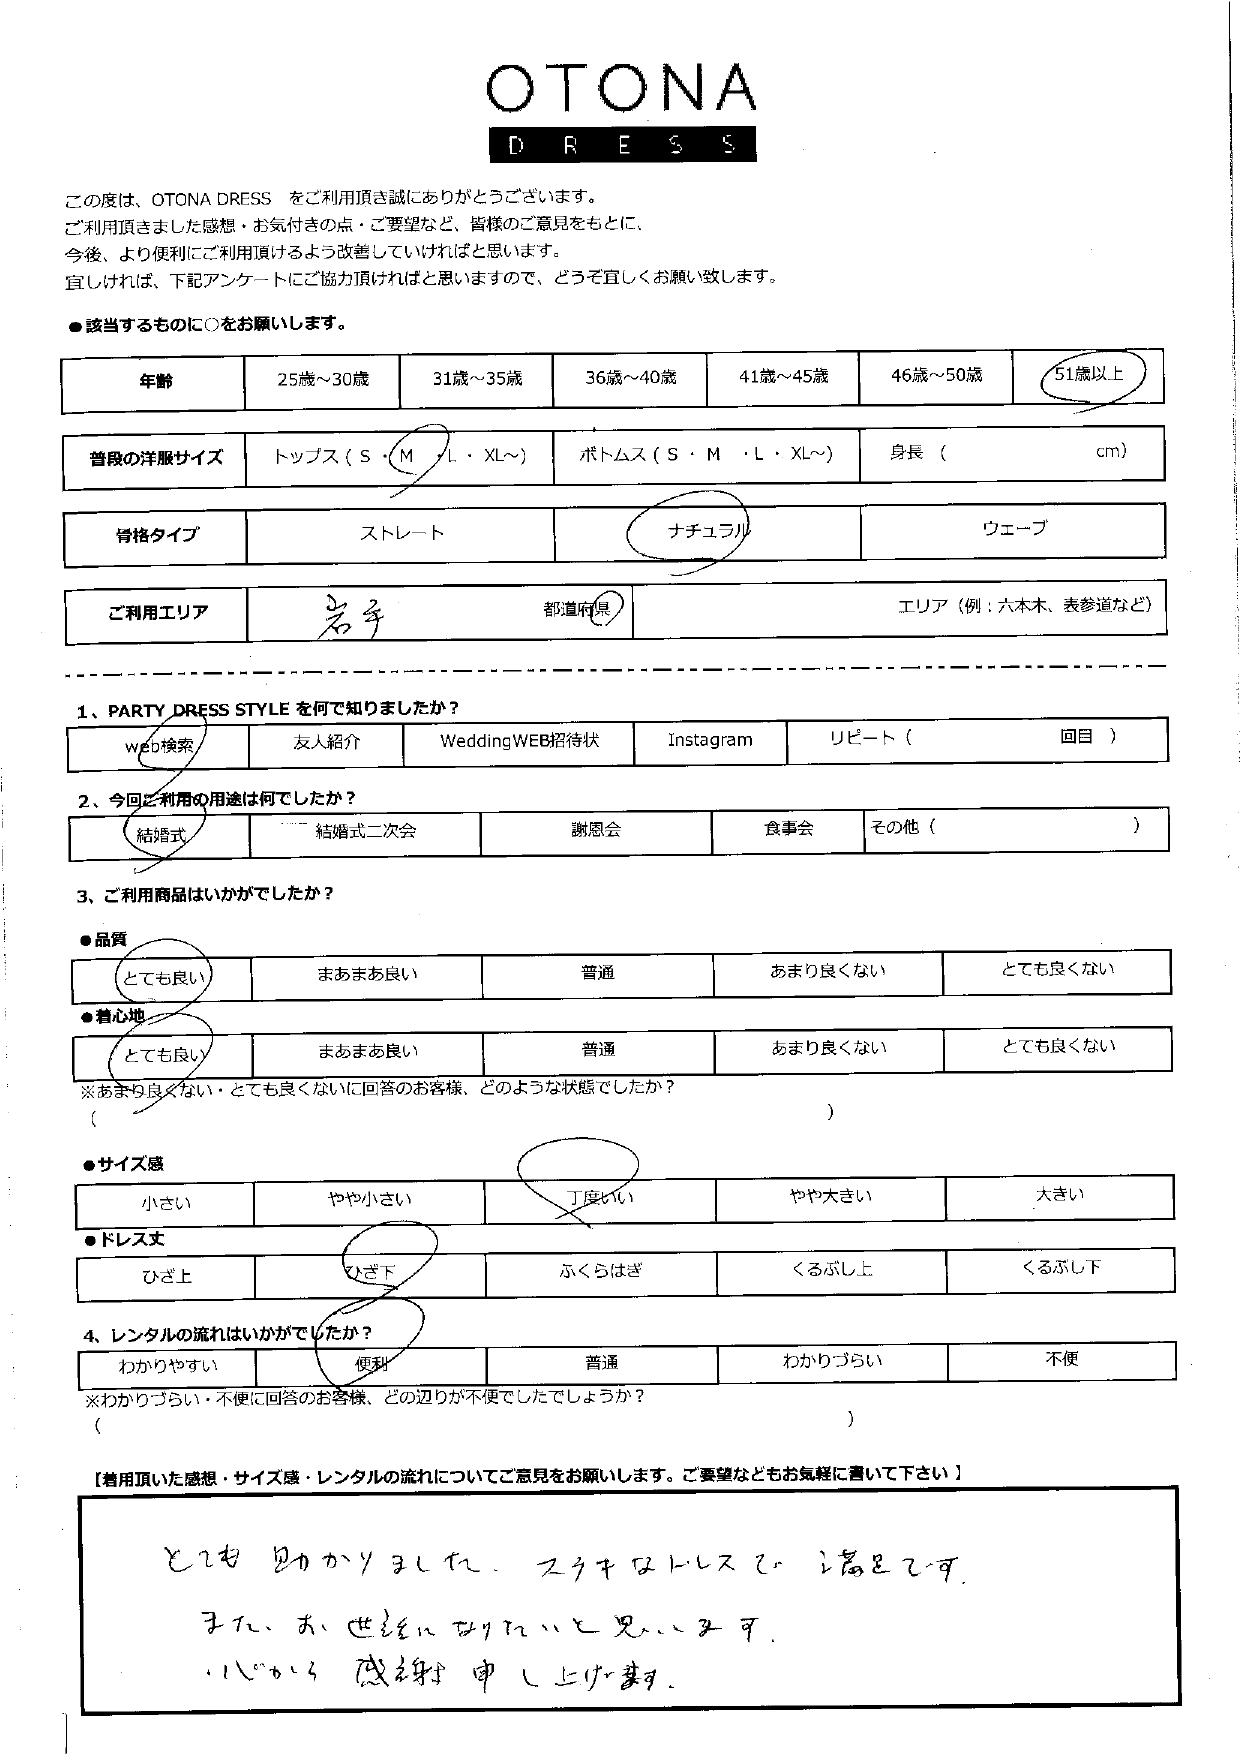 OTONA
DRESS
この度は、OTONA DRESS　をご利用頂き誠にありがとうございます。
ご利用頂きました感想・お気付きの点・ご要望など、皆様のご意見をもとに、
今後、より便利にご利用頂けるよう改善していければと思います。
宜しければ、下記アンケートにご協力頂ければと思いますので、どうぞ宜しくお願い致します。
●該当するものに○をお願いします。
年齢 25歳～30歳 31歳～35歳 36歳～40歳 41歳～45歳 46歳～50歳 51歳以上
普段の洋服サイズ トップス（ S ・ M ・L ・ XL～） ボトムス（ S ・ M ・L ・ XL～） 身長（ cm）
骨格タイプ ストレート ナチュラル ウェーブ
ご利用エリア 岩手 都道府県 エリア（例：六本木、表参道など）
1、PARTY DRESS STYLE を何で知りましたか？
web検索 友人紹介 WeddingWEB招待状 Instagram リピート（ 回目 ）
2、今回ご利用の用途は何でしたか？
結婚式 結婚式二次会 謝恩会 食事会 その他（ ）
3、ご利用商品はいかがでしたか？
●品質
とても良い まあまあ良い 普通 あまり良くない とても良くない
●着心地
とても良い まあまあ良い 普通 あまり良くない とても良くない
※あまり良くない・とても良くないに回答のお客様、どのような状態でしたか？
（ ）
●サイズ感
小さい やや小さい 丁度いい やや大きい 大きい
●ドレス丈
ひざ上 ひざ下 ふくらはぎ くるぶし上 くるぶし下
4、レンタルの流れはいかがでしたか？
わかりやすい 便利 普通 わかりづらい 不便
※わかりづらい・不便に回答のお客様、どの辺りが不便でしたでしょうか？
（ ）
【着用頂いた感想・サイズ感・レンタルの流れについてご意見をお願いします。ご要望などもお気軽に書いて下さい】
とても助かりました. ステキなドレスで 満足です.
また、お世話になりたいと思います.
心から 感謝申し上げます.